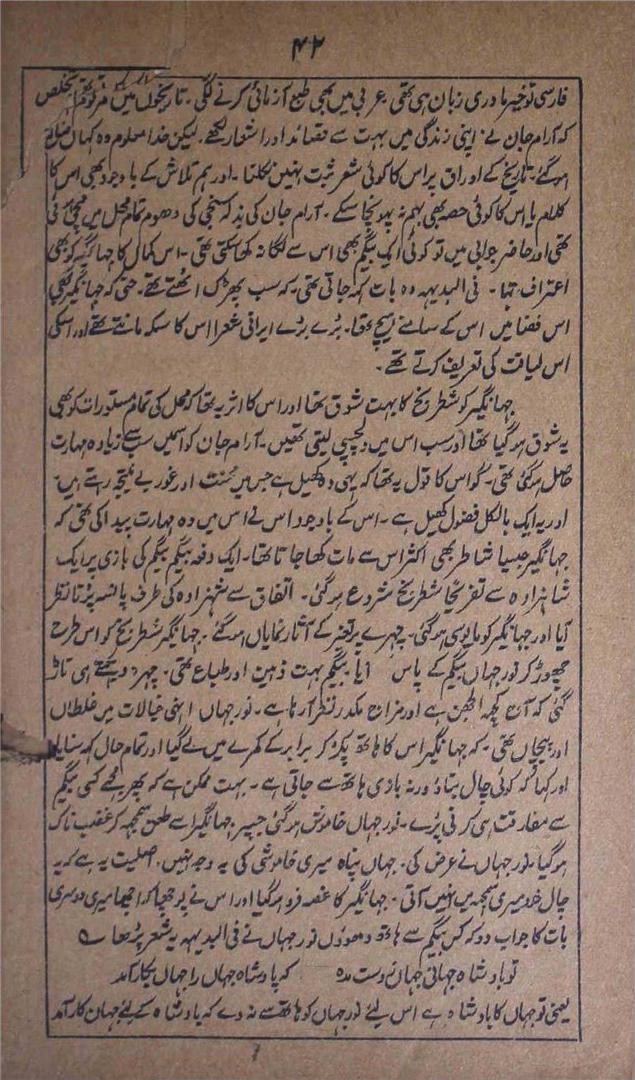 ۴۲
فارسی تو خیر مادری زبان ہی تھی عربی میں بھی طبع آزمائی کرنے لگی۔ تاریخوں میں مرقوم
کہ آرام جان نے اپنی زندگی میں بہت سے قصائد اور اشعار لکھے۔ لیکن خدا معلوم وہ کہاں ضائع
ہو گئے۔ تاریخ کے اوراق پر اس کا کوئی شعر ثبت نہیں نکلتا۔ اور ہم تلاش کے باوجود بھی اس کا
کلام یا اس کا کوئی حصہ بھی بہم نہ پہونچا سکے۔ آرام جان کی بذلہ سنجی کی دھوم تمام محل میں مچی ہوئی
تھی اور حاضر جوابی میں تو کوئی ایک بیگم بھی اس سے لگا نہ کھا سکتی تھی۔ اس کمال کا جہانگیر کو بھی
اعتراف تھا۔ فی البدیہہ وہ بات کہہ جاتی تھی۔ کہ سب پھڑک اٹھتے تھے۔ حتیٰ کہ جہانگیر بھی
اس فضا میں اس کے سامنے ہیچ تھا۔ بڑے بڑے ایرانی شعرا اس کا سکہ مانتے تھے اور اسکی
اس لیاقت کی تعریف کرتے تھے۔
جہانگیر کو شطرنج کا بہت شوق تھا اور اس کا اثر یہ تھا کہ محل کی تمام مستورات کو بھی
یہ شوق ہو گیا تھا اور سب اس میں دلچسپی لیتی تھیں۔ آرام جان کو اسمیں سب سے زیادہ مہارت
حاصل ہو گئی تھی۔ گو اس کا قول یہ تھا کہ یہی وہ کھیل ہے جس میں محنت اور غور بے نتیجہ رہتے ہیں۔
اور یہ ایک بالکل فضول کھیل ہے۔ اس کے باوجود اس نے اس میں وہ مہارت پیدا کی تھی کہ
جہانگیر جیسا شاطر بھی اکثر اس سے مات کھا جاتا تھا۔ ایک دفعہ بیگم بیگم کی بازی پر ایک
شاہزادہ سے تفریحاً شطرنج شروع ہو گئی۔ اتفاق سے شہزادہ کی طرف پانسہ پڑتا نظر
آیا اور جہانگیر کو مایوسی ہو گئی۔ چہرے پر تغیر کے آثار نمایاں ہو گئے۔ جہانگیر شطرنج کو اس طرح
چھوڑ کر نور جہاں بیگم کے پاس آیا بیگم بہت ذہین اور طباع تھی۔ چہرہ دیکھتے ہی تاڑ
گئی کہ آج کچھ الجھن ہے اور مزاج مکدر نظر آرہا ہے۔ نور جہاں انہی خیالات میں غلطاں
اور پیچاں تھی۔ کہ جہانگیر اس کا ہاتھ پکڑ کر برابر کے کمرے میں لے گیا اور تمام حال کہہ سنایا
اور کہا کہ کوئی چال بتاؤ ورنہ بازی ہاتھ سے جاتی ہے۔ بہت ممکن ہے کہ پھر مجھے کسی بیگم
سے مفارقت ہی کرنی پڑے۔ نور جہاں خاموش ہو گئی جسپر جہانگیر اسے طعن سمجھ کر غضب ناک
ہو گیا۔ نور جہاں نے عرض کی۔ جہاں پناہ میری خاموشی کی یہ وجہ نہیں۔ اصلیت یہ ہے کہ یہ
چال خود میری سمجھ میں نہیں آتی۔ جہانگیر کا غصہ فرو ہو گیا اور اس نے پوچھا کہ اچھا میری دوسری
بات کا جواب دو کہ کس بیگم سے ہاتھ دھوؤں نور جہاں نے فی البدیہہ یہ شعر پڑھا ؎
تو بادشاہ جہانی جہان ز دست مدہ کہ پادشاہ جہاں را جہاں بکار آمد
یعنی تو جہاں کا بادشاہ ہے اس لیئے نور جہاں کو ہاتھ سے نہ دے کہ بادشاہ کے لیئے جہان کار آمد